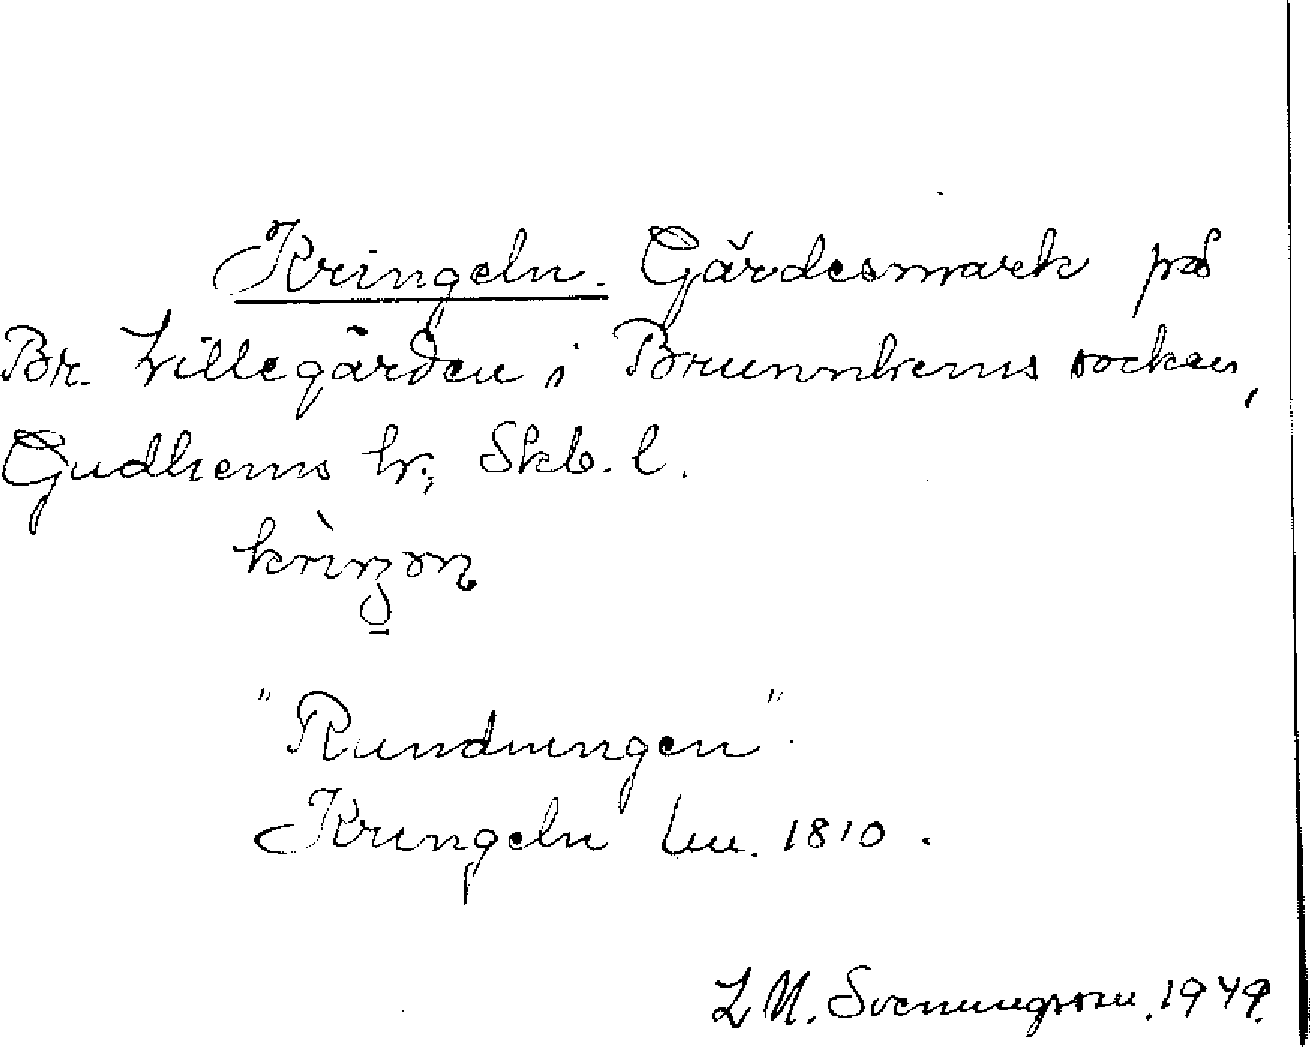 Kringeln. Gärdesmark på
Br. Lillegården i Brunnhems socken,
Gudhems hr; Skb. l.
"Rundningen".
Kringeln lm. 1810.
L M. Svenungsson. 1949.